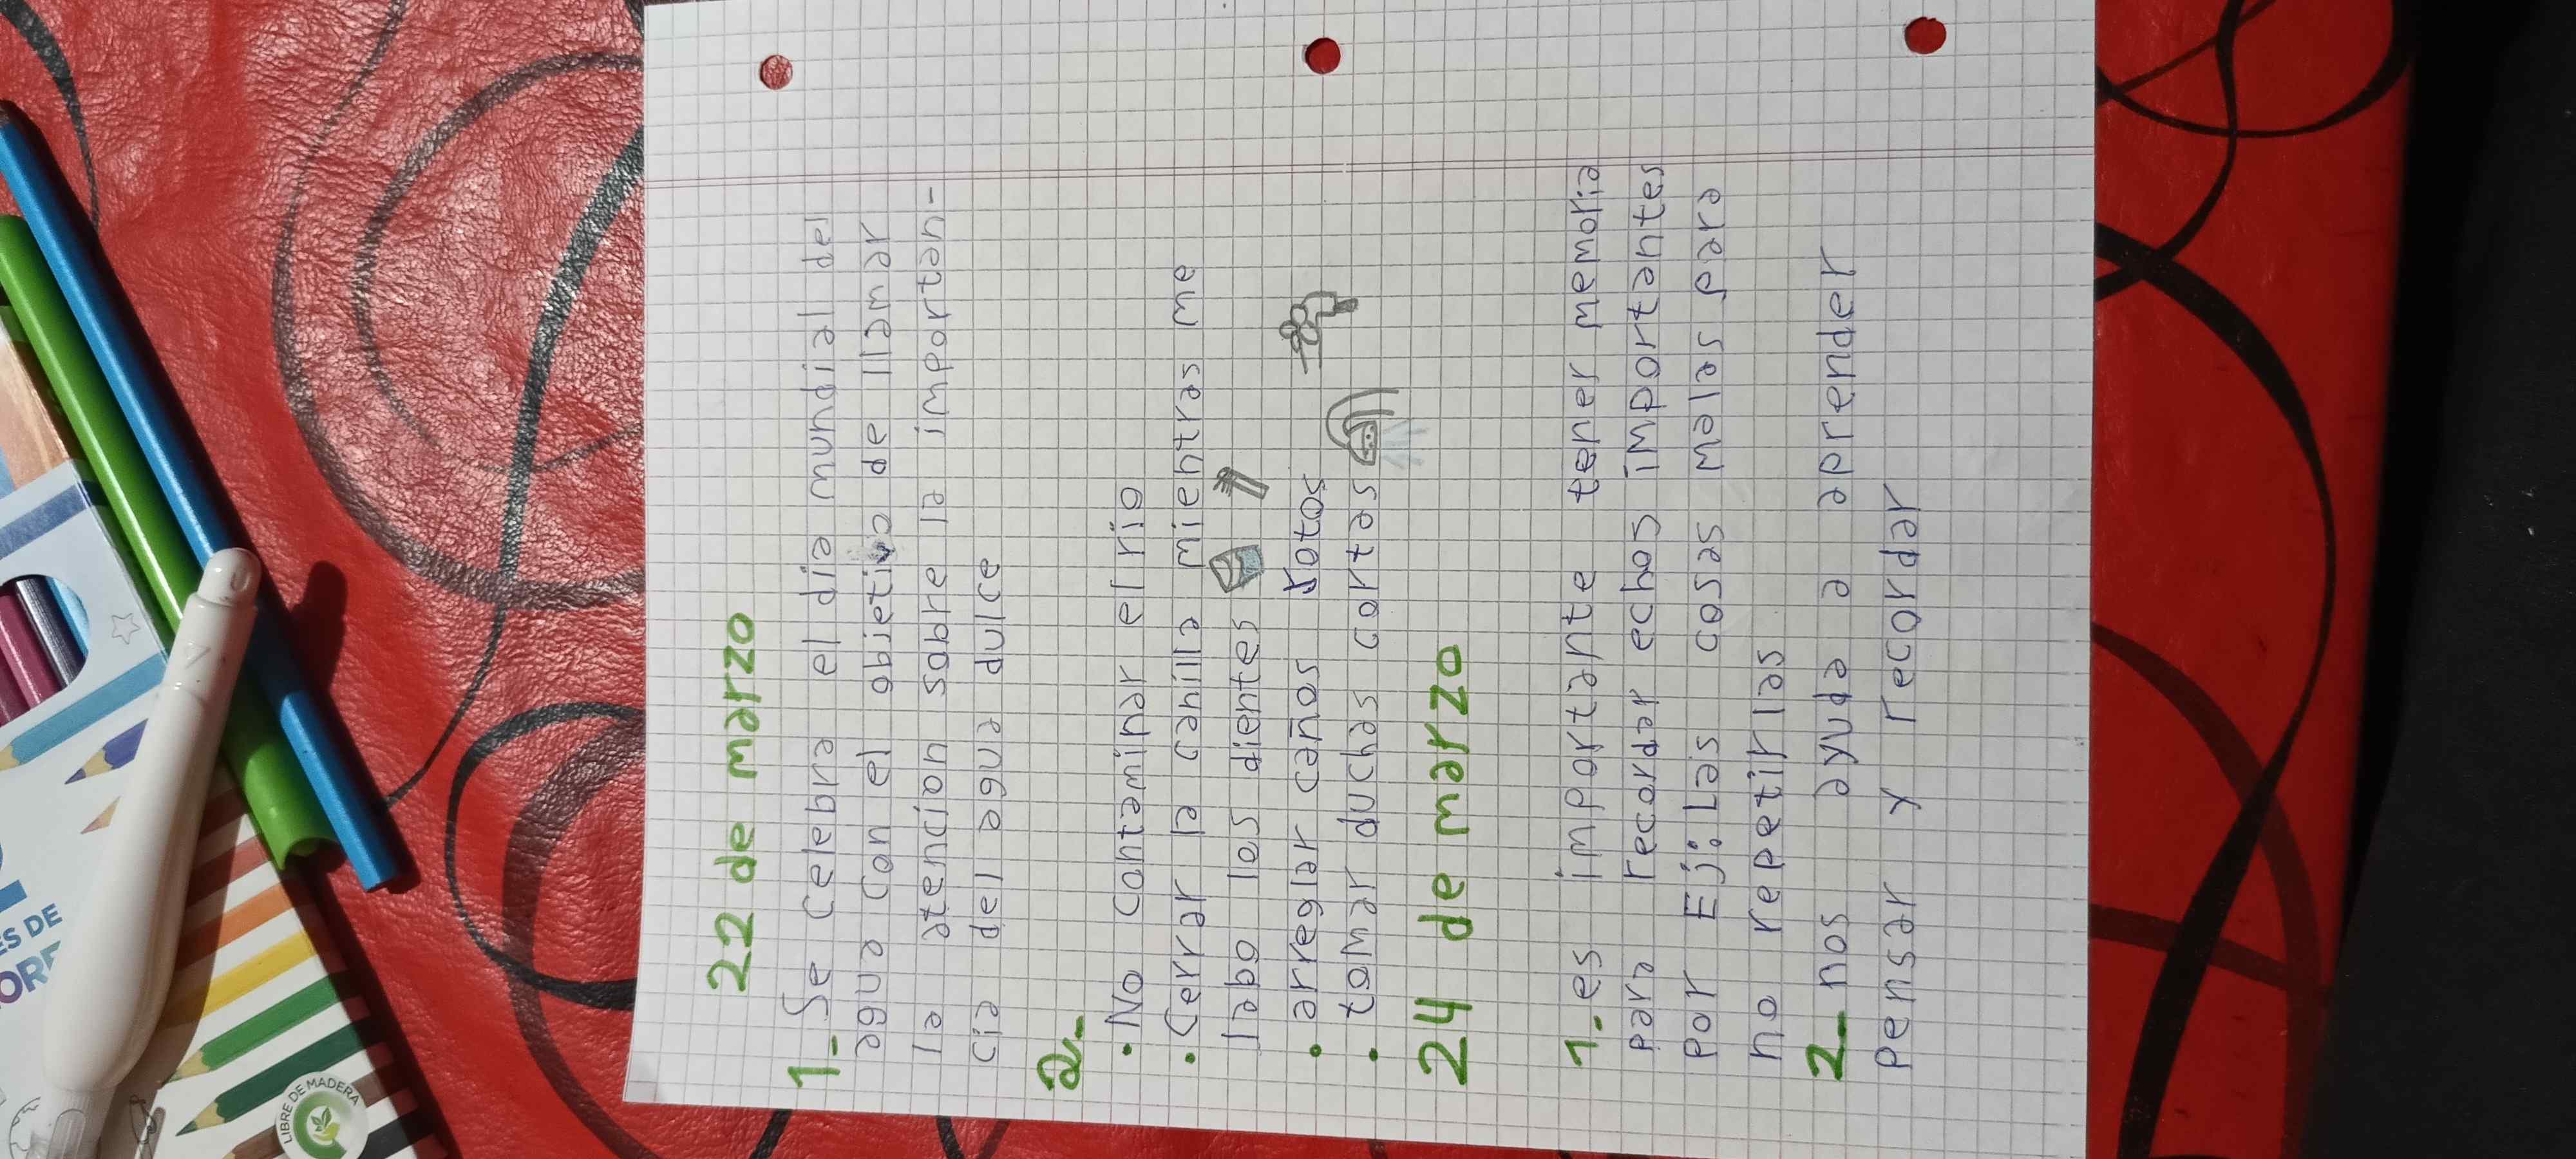 22 de marzo
1- Se celebra el dia mundial del
agua con el objetivo de llamar
la atencion sobre la importan-
cia del agua dulce
2-
• No contaminar el rio
• Cerrar la canilla mientras me
labo los dientes
• arreglar caños rotos
• tomar duchas cortas
24 de marzo
1- es importante tener memoria
para recordar echos importantes
por Ej: Las cosas malas para
no repetirlas
2- nos ayuda a aprender
pensar y recordar
ES DE
LIBRE DE MADERA